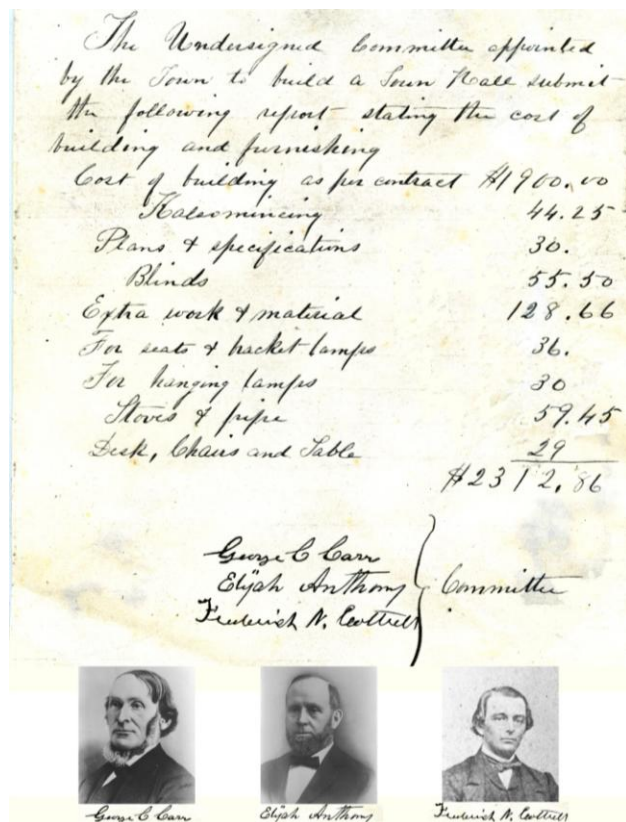 The Undersigned Committee appointed
by the Town to build a Town Hall submit
the following report stating the cost of
building and furnishing
Cost of building as per contract $1900.00
Kalsomineing 44.25
Plans & specifications 30.
Blinds 55.50
Extra work & material 128.66
For seats & bracket lamps 36.
For hanging lamps 30
Stoves & pipe 59.45
Desk, Chairs and Table 29
$2312.86
George C Carr
Elijah Anthony
Frederick N. Cottrell
Committee
George C Carr Elijah Anthony Frederick N. Cottrell